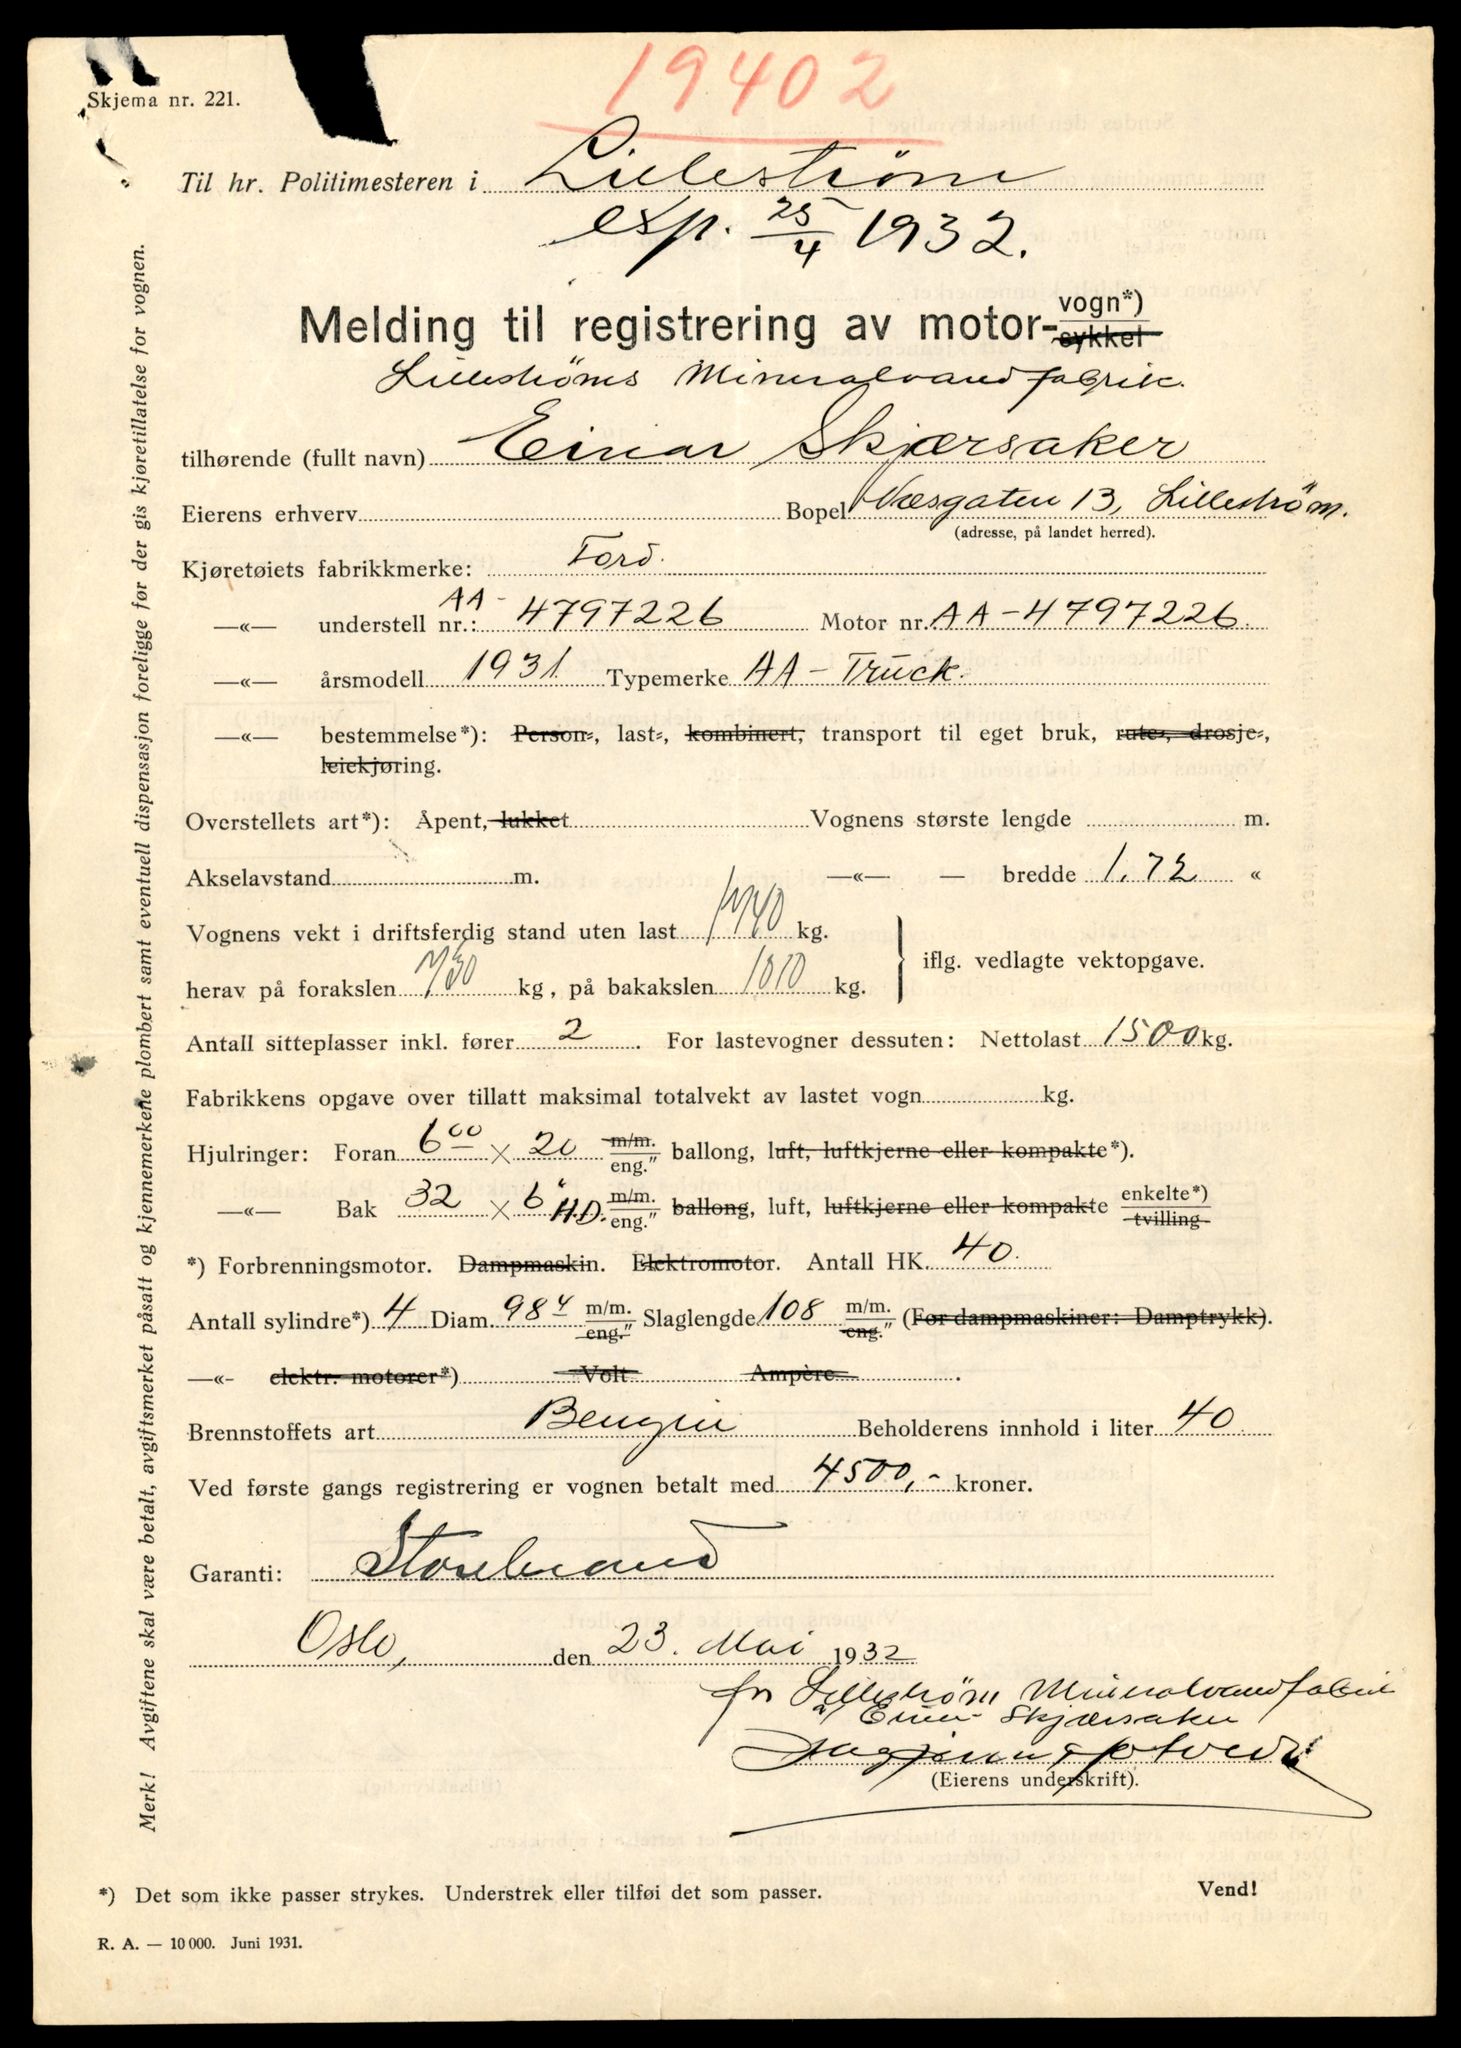 19402
Skjema nr. 221.
Til hr. Politimesteren i Lillestrøm
exp. 25/4 1932.
Melding til registrering av motor- vogn*) sykkel
Lillestrøms Mineralvandfabrik.
tilhørende (fullt navn) Einar Skjærsaker
Eierens erhverv Bopel Næsgaten 13, Lillestrøm.
(adresse, på landet herred).
Kjøretøiets fabrikkmerke: Ford.
—«— understell nr.: AA-4797226 Motor nr. AA-4797226.
—«— årsmodell 1931. Typemerke AA-Truck.
—«— bestemmelse*): Person-, last-, kombinert, transport til eget bruk, rute-, drosje-,
leiekjøring.
Overstellets art*): Åpent, lukket Vognens største lengde m.
Akselavstand m. —«— — bredde 1,72 «
Vognens vekt i driftsferdig stand uten last kg.
herav på forakslen kg, på bakakslen 1010 kg. iflg. vedlagte vektopgave.
Antall sitteplasser inkl. fører 2. For lastevogner dessuten: Nettolast 1500 kg.
Fabrikkens opgave over tillatt maksimal totalvekt av lastet vogn kg.
Hjulringer: Foran 6 00 × 20 m/m. eng." ballong, luft, luftkjerne eller kompakte*).
—«— Bak 32 × 6" H.D. m/m. eng." ballong, luft, luftkjerne eller kompakte enkelte*) tvilling
*) Forbrenningsmotor. Dampmaskin. Elektromotor. Antall HK. 40.
Antall sylindre*) 4 Diam. 98 4 m/m. eng." Slaglengde 108 m/m. eng." (For dampmaskiner: Damptrykk).
—«- elektr. motorer*) Volt Ampère.
Brennstoffets art Benzin Beholderens innhold i liter 40
Ved første gangs registrering er vognen betalt med 4500,- kroner.
Garanti: Storebrand
Oslo, den 23. Mai 1932
for Lillestrøm Mineralvandfabrik
Einar Skjærsaker
(Eierens underskrift).
*) Det som ikke passer strykes. Understrek eller tilføi det som passer. Vend!
R. A. — 10 000. Juni 1931.
Merk! Avgiftene skal være betalt, avgiftsmerket påsatt og kjennemerkene plombert samt eventuell dispensasjon foreligge før der gis kjøretillatelse for vognen.